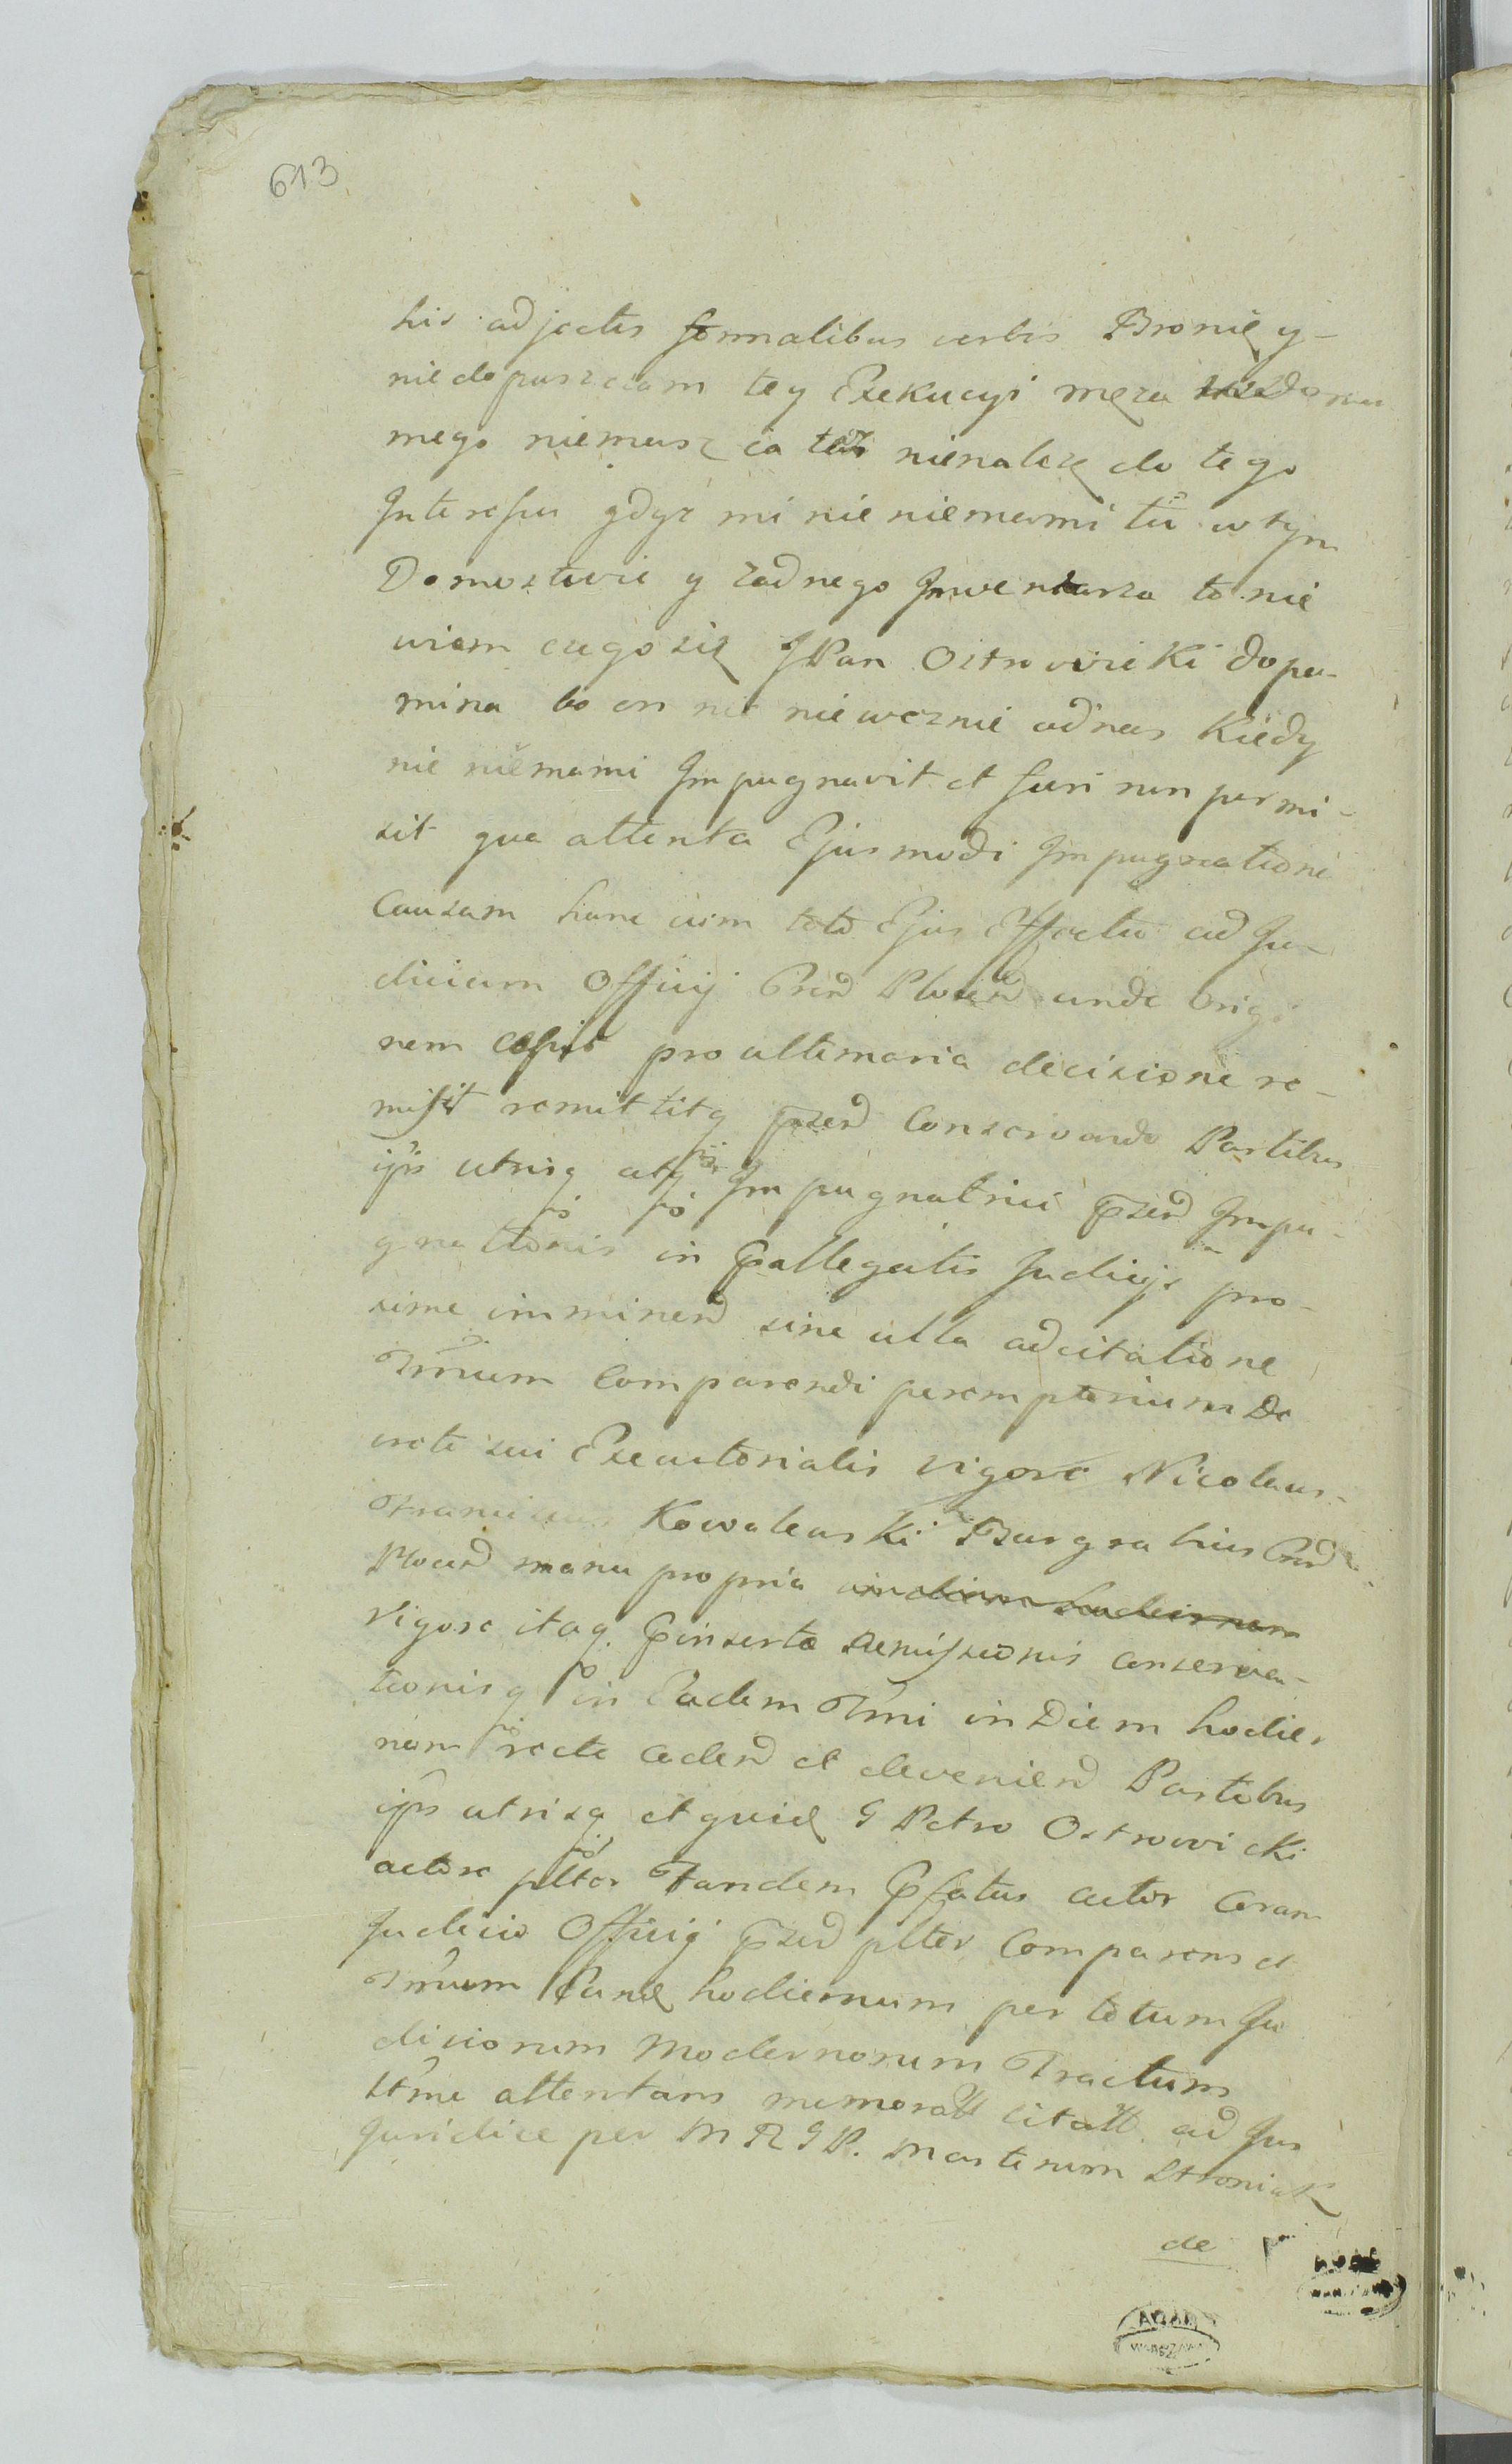 613
his adjectis formalibus verbis Bronię y-
niedopuszczam tey Exekucyi męza w Domu
mego niemasz ia też nienalezę do tego
Interessu gdyz mi nic niemami tu w tym
Domostwie y zadnego Inwentarza to nie
wiem czego się JPan Ostrowicki dopu-
mina bo on nic nieweznie od nas Kiedy
nic niemami Impugnavit et fieri non permi-
sit qua attenta Ejusmodi Impugnatione
Causam hanc cum toto Ejus Effectu ad Ju-
dicium Officij Crnd Plocend unde Origi
nem cepit pro ultimaria decisione re-
misit remittitq pnsend Conservando Partibus
ipis utrisq atq Impugnatrici pnsend Impu-
gnationis in pallegatis Judicijs pro-
xime imminend sine ulla adcitatione
Trnum Comparendi peremptorium De
creti sui Executorialis vigore Nicolaus-
Franciscus Kowalewski Burgrabius Crnd
Plocend manu propria
Vigore itaq pinsertæ remissionis conserva-
tionisq in Eadem Trni in Diem hodier
nam recte cadend et deveniend Partibus
ipis utrisq et quid G Petro Ostrowicki
actore plter Tandem pfatus actor Coram
Judicio Officij pnsend plter Comparens et
Trnum hodiernum per totum Ju
diciorum Modernorum Tractum
ltme attentans memoratt citatt ad Jus
Juridice per M R G P. Martinum Stroniak
de
AGAD
WARSZAWA